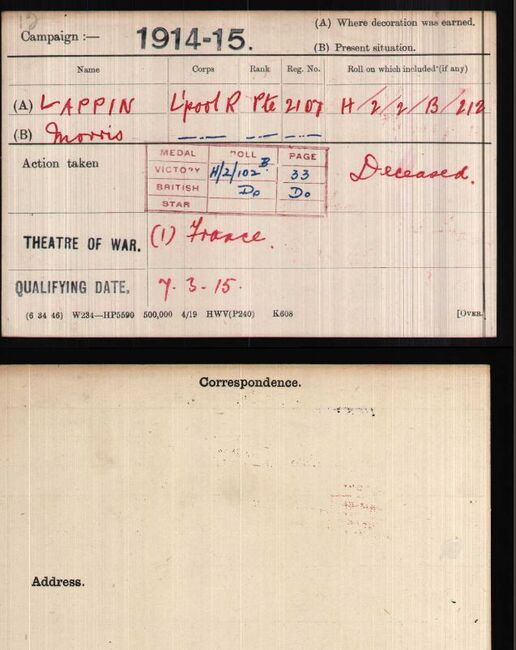 Campaign :— 1914-15. (A) Where decoration was earned.
(B) Present situation.
Name Corps Rank Reg. No. Roll on which included (if any)
(A) LAPPIN L'pool R Pte 2107 H/2/2/B/212
(B) Morris —·— —·— —·—
Action taken
MEDAL ROLL PAGE
VICTORY H/2/102 B 33
BRITISH Do Do
STAR
Deceased.
THEATRE OF WAR. (1) France.
QUALIFYING DATE. 7.3.15.
(6 34 46) W234—HP5590 500,000 4/19 HWV(P240) K608 [OVER.
Correspondence.
Address.